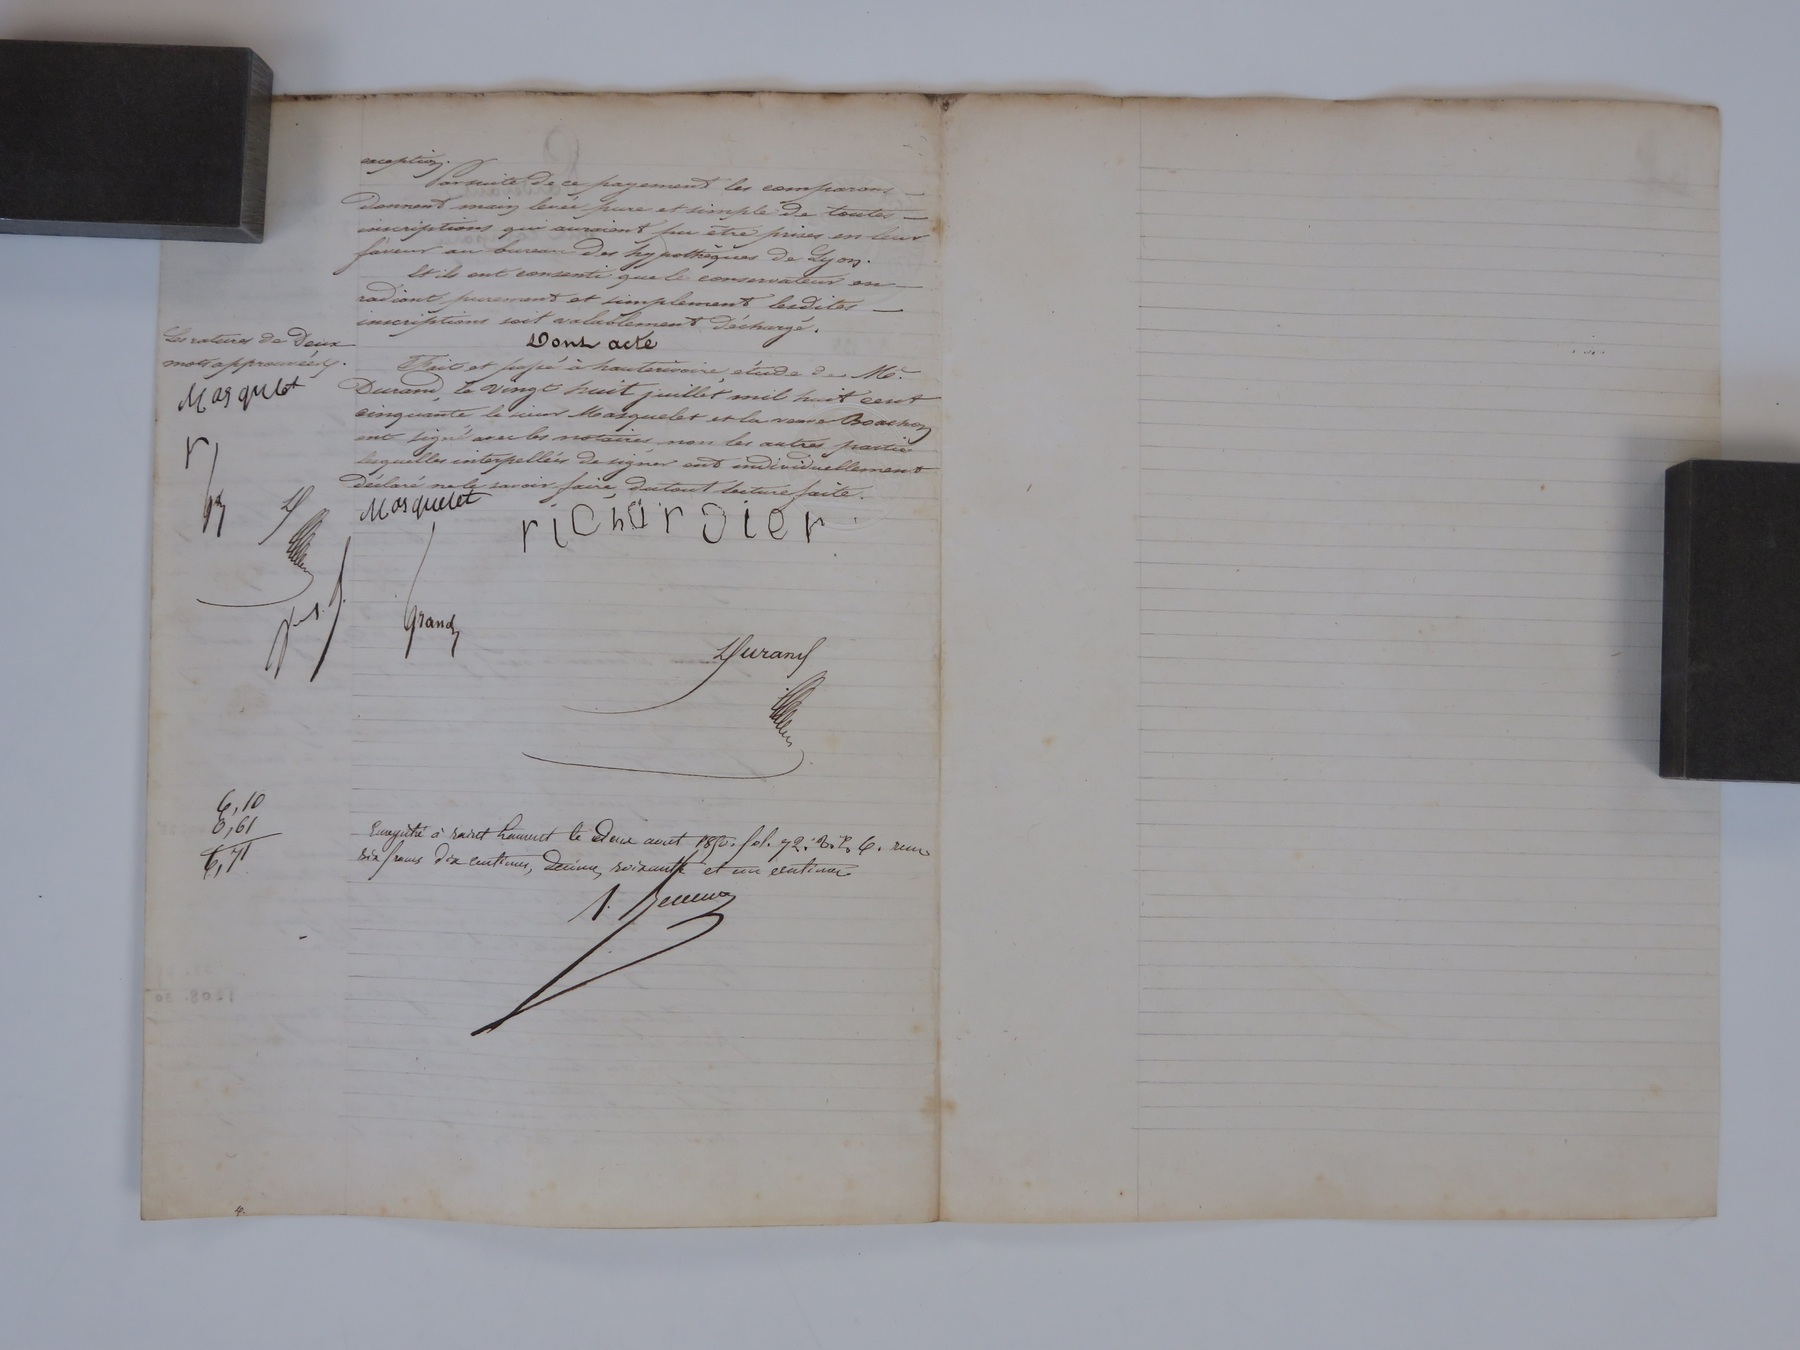 exception.
Par suite de ce payement les comparans
donnent main levée pure et simple de toutes
inscriptions qui auraient pu être prises en leur
faveur au bureau des hypothèques de Lyon.
Et ils ont consenti que le conservateur en
radiant purement et simplement lesdites
inscriptions soit valablement déchargé.
Dont acte
Fait et passé à hauterivoire étude de Me
Durand, le vingt huit juillet mil huit cent
cinquante le sieur Masquelet et la veuve
ont signé avec les notaires non les autres partie
lesquelles interpellées de signer ont individuellement
déclaré ne le savoir faire du tout lecture faite.
Les ratures de Deux
mots approuvées.
Masquelet
r
Masquelet
richardier
Grand
Durand
6,10
0,61
6,71
Enregistré à saint Laurent le deux aout 1850. fol. 72. V. C. 6. reçu
six francs dix centimes, décime, soixante et un centimes
4.